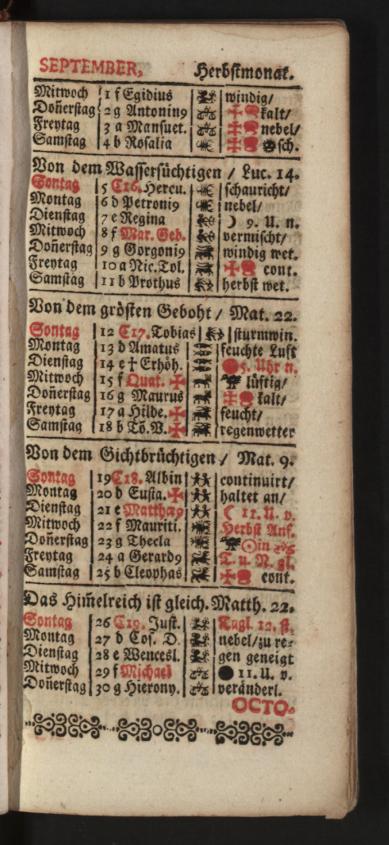 SEPTEMBER, Herbstmonat.
Mitwoch 1 f Egidius windig/
Doñerstag 2 g Antoning kalt/
Freytag 3 a Mansuet. nebel/
Samstag 4 b Rosalia sch.
Von dem Wassersüchtigen / Luc. 14.
Sontag 5 C16. Hercu. schauricht/
Montag 6 d Petronig nebel/
Dienstag 7 e Regina ☽ 9. U. n.
Mitwoch 8 f Mar. Geb. vermischt/
Doñerstag 9 g Gorgonig windig wet.
Freytag 10 a Nic. Tol. ✠ cont.
Samstag 11 b Prothus herbst wet.
Von dem grösten Geboht / Mat. 22.
Sontag 12 C17. Tobias sturmwin.
Montag 13 d Amatus feuchte Luft
Dienstag 14 e † Erhöh. 5. Uhr n.
Mitwoch 15 f Quat. ✠ lüftig/
Doñerstag 16 g Maurus ✠ kalt/
Freytag 17 a Hilde. ✠ feucht/
Samstag 18 b Tö. V. ✠ regenwetter
Von dem Gichtbrüchtigen / Mat. 9.
Sontag 19 C18. Albin continuirt/
Montag 20 d Eusta. ✠ haltet an/
Dienstag 21 e Matthäg ☾ 11. U. v.
Mitwoch 22 f Mauriti. Herbst Anf.
Doñerstag 23 g Thecla ☉ in
Freytag 24 a Gerardg T. u. N. gl.
Samstag 25 b Cleophas ✠ cont.
Das Him̃elreich ist gleich. Matth. 22.
Sontag 26 C19. Just. Tagl. 12. st.
Montag 27 d Cos. D. nebel/zu re-
Dienstag 28 e Wencesl. gen geneigt
Mitwoch 29 f Michael ● 11. U. v.
Doñerstag 30 g Hierony. veränderl.
OCTO-